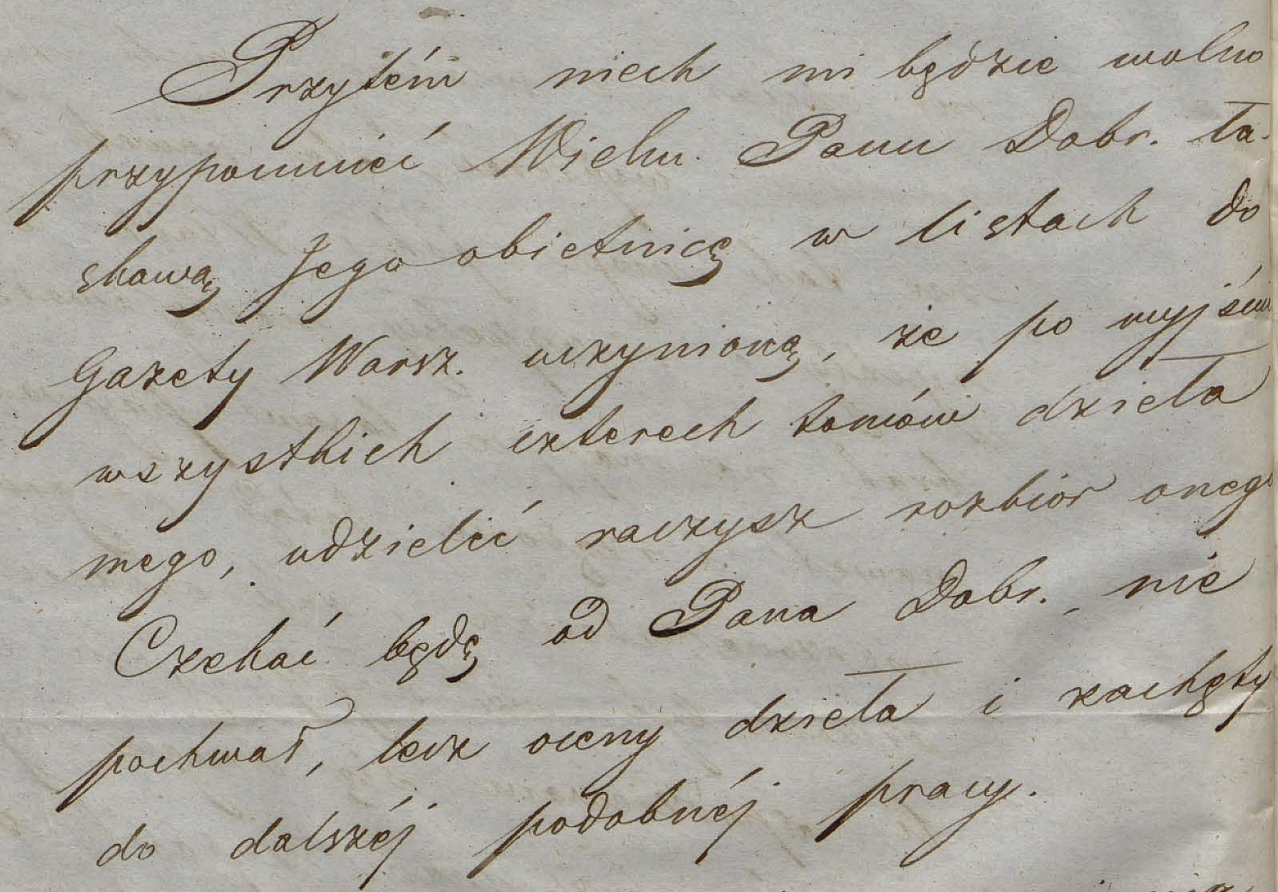 Przytém niech mi będzie wolno
przypomnieć Wielm. Panu Dobr. ła-
skawą Jego obietnicę w listach do
Gazety Warsz. uczynioną, że po wyjściu
wszystkich czterech tomów dzieła
mego, udzielić raczysz rozbiór onego
Czekać będę od Pana Dobr. nie
pochwał, lecz oceny dzieła i zachęty
do dalszéj podobnéj pracy.